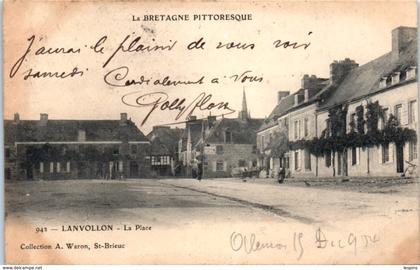 La BRETAGNE PITTORESQUE
J'aurai le plaisir de vous voir
samedi
Cordialement à vous
942 - LANVOLLON - La Place
Collection A. Waron, St-Brieuc